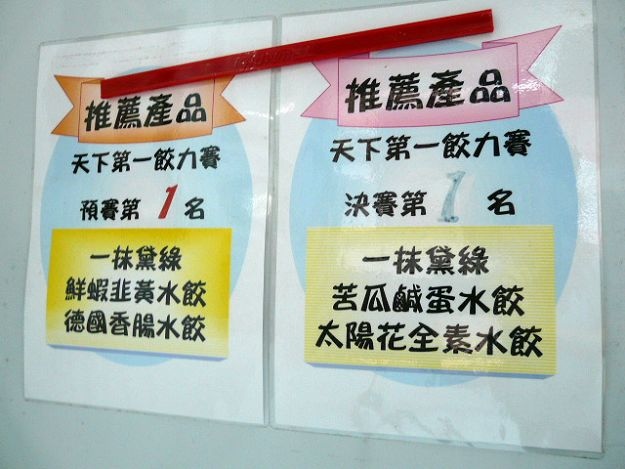 推薦產品
天下第一餃力賽
預賽第 1 名
一抹黛綠
鮮蝦韭黃水餃
德國香腸水餃
推薦產品
天下第一餃力賽
決賽第 1 名
一抹黛綠
苦瓜鹹蛋水餃
太陽花全素水餃